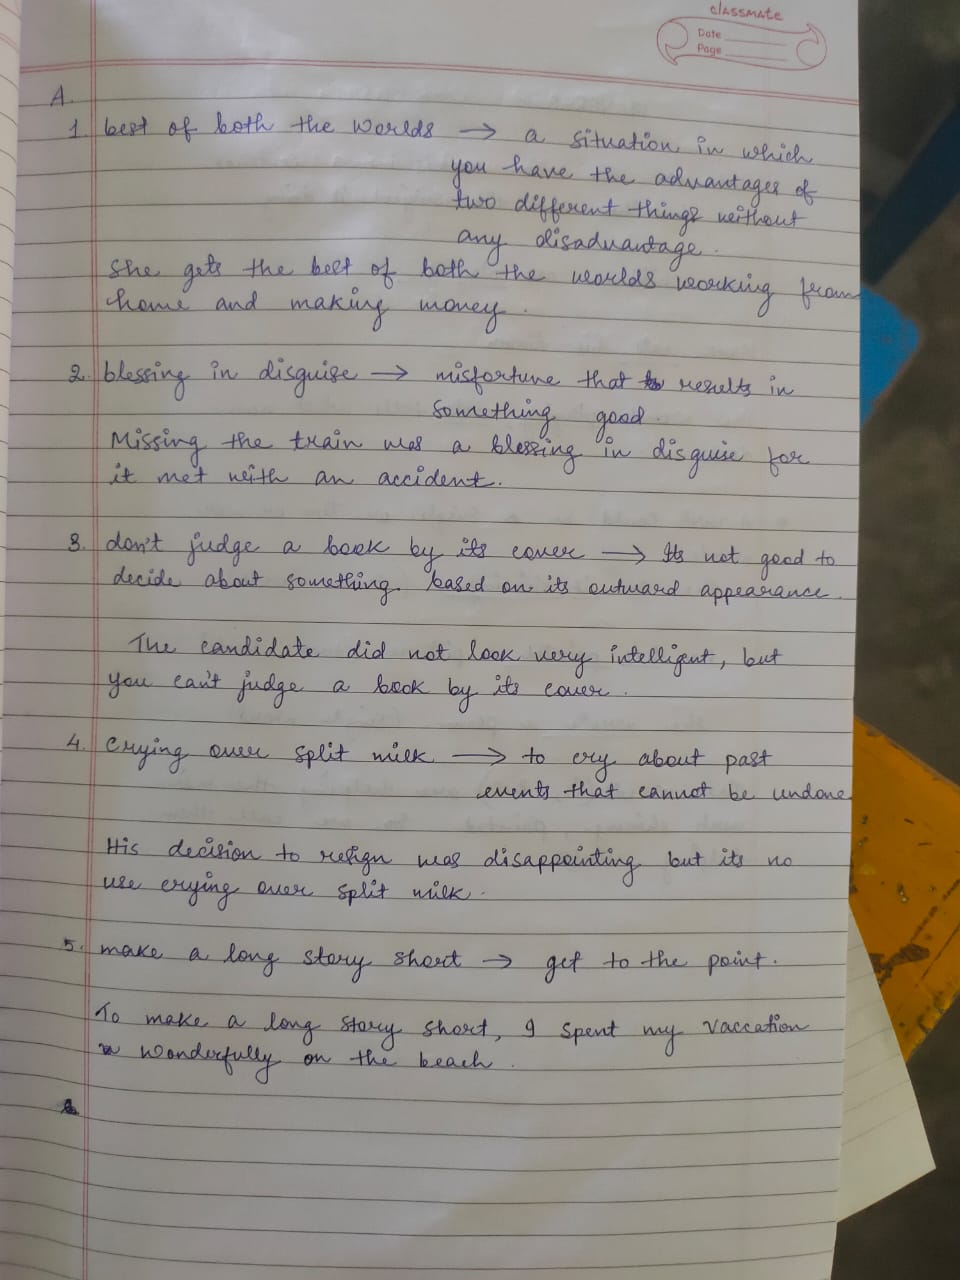 classmate
Date
Page
A.
1. best of both the worlds → a situation in which
you have the advantages of
two different things without
any disadvantage.
She gets the best of both the worlds working from
home and making money.
2. blessing in disguise → misfortune that results in
something good.
Missing the train was a blessing in disguise for
it met with an accident.
3. don't judge a book by its cover → Its not good to
decide about something based on its outward appearance.
The candidate did not look very intelligent, but
you can't judge a book by its cover.
4. Crying over split milk → to cry about past
events that cannot be undone
His decision to resign was disappointing but its no
use crying over split milk.
5. make a long story short → get to the point.
To make a long story short, I spent my vaccation
wonderfully on the beach.